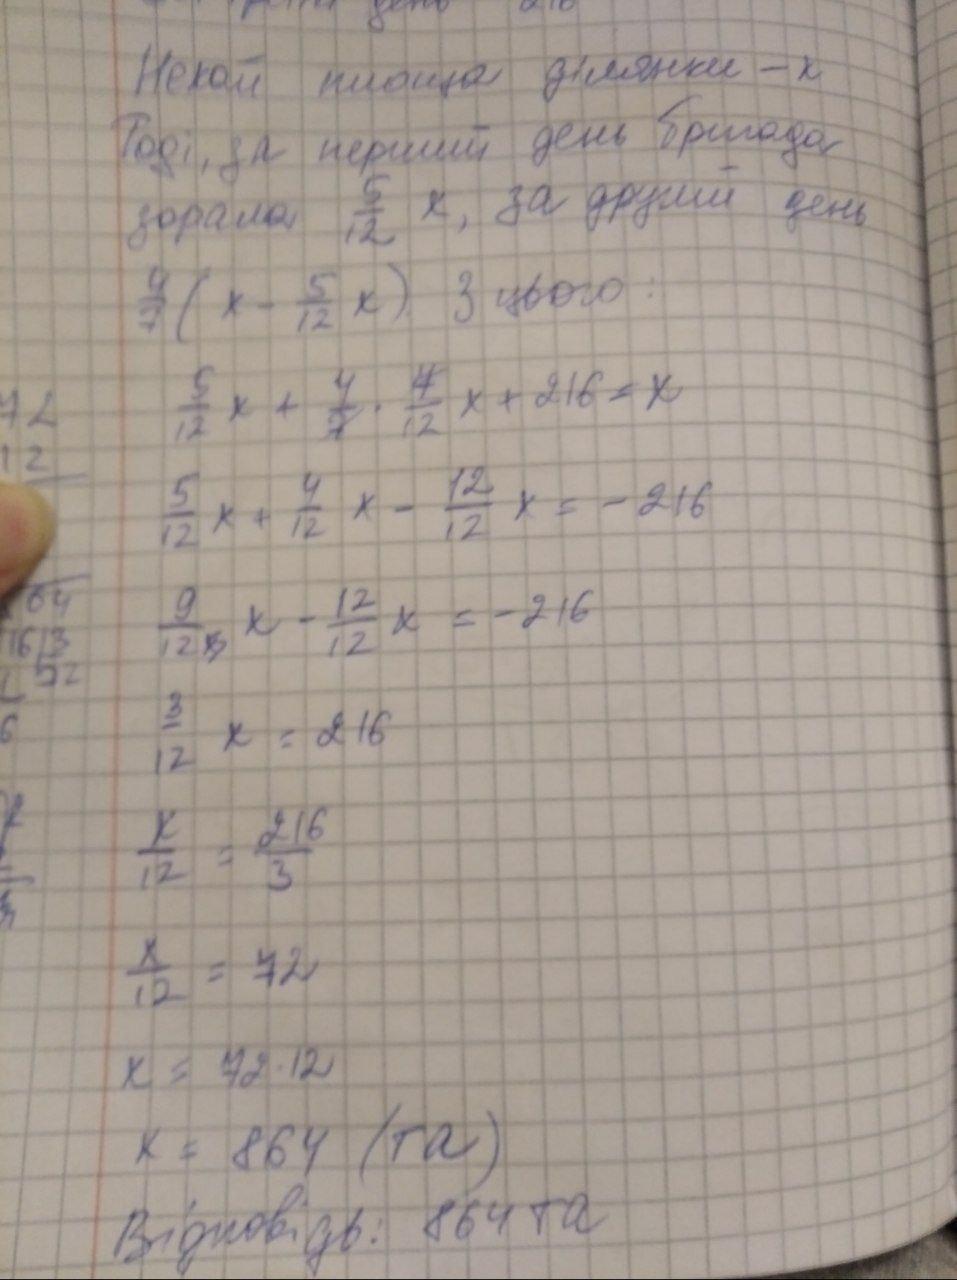 день 216
Нехай площа ділянки - x
Тоді, за перший день бригада
зорала 5/12 x, за другий день
4/7 ( x - 5/12 x ) З цього :
5/12 x + 4/7 · 7/12 x + 216 = x
5/12 x + 4/12 x - 12/12 x = - 216
9/12 x - 12/12 x = - 216
3/12 x = 216
x/12 = 216/3
x/12 = 72
x = 72 · 12
x = 864 (га)
Відповідь: 864 га
72
12